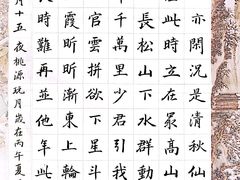 亦閒況是清秋仙
此時立在最高山
長松山下水群動
千萬里少君引我
官雲軿欲下星斗
霞昕昕漸東上輪
時難再並他年此
月十五夜桃源玩月歲在丙午夏